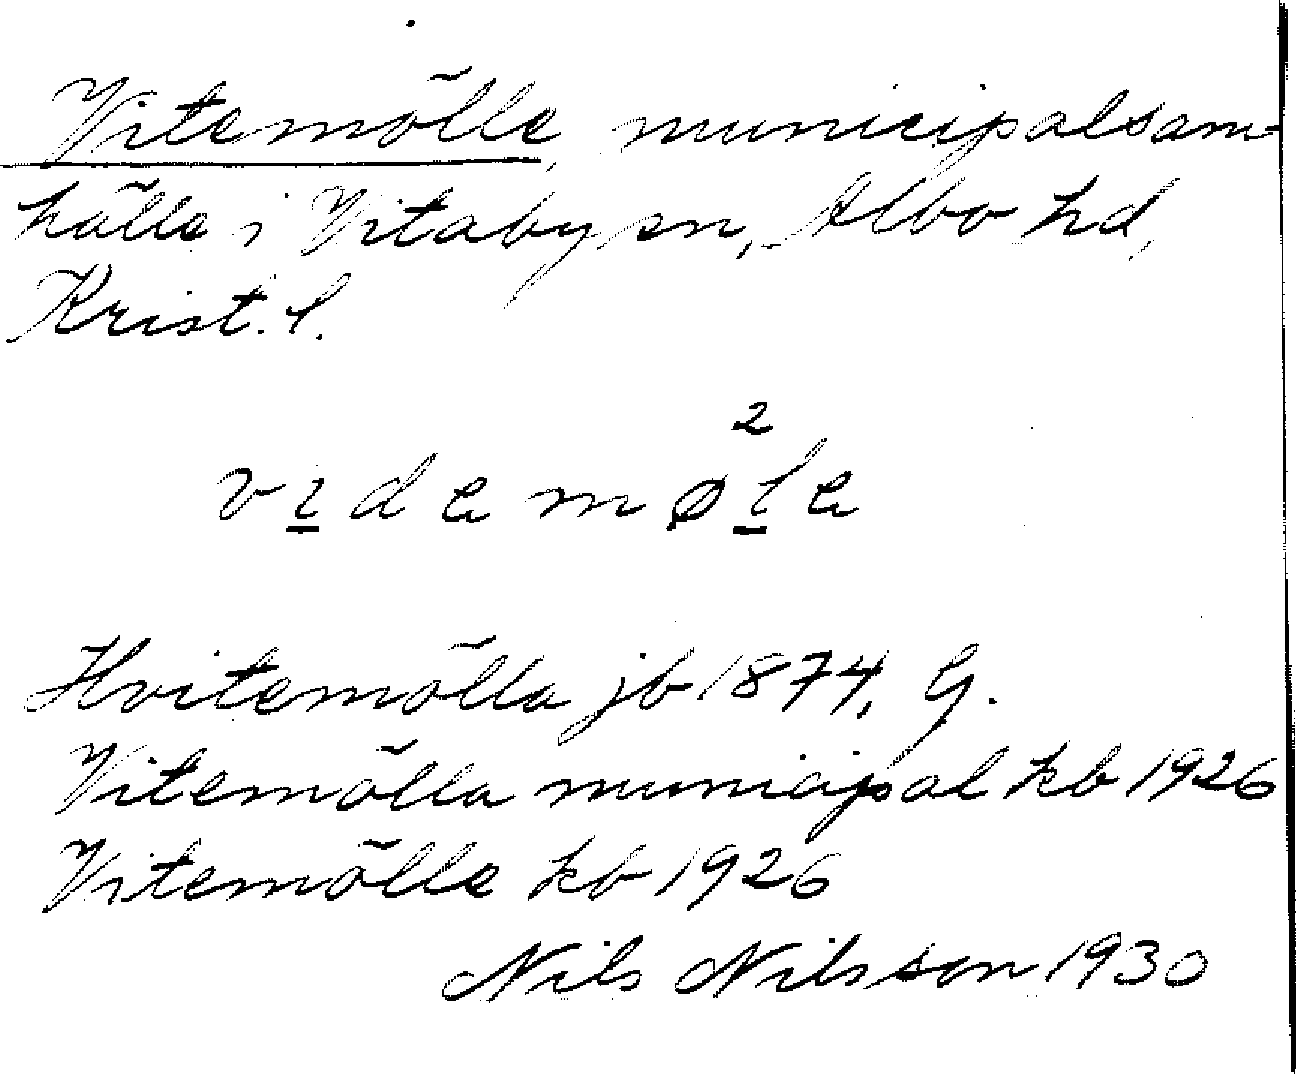 Vitemölle, municipalsam-
hälle i Vitaby sn, Albo hd,
Krist. l.
2
videmøle
Hvitemölla jb 1874, G.
Vitemölla municipal kb 1926
Vitemölle kb 1926
Nils Nilsson 1930